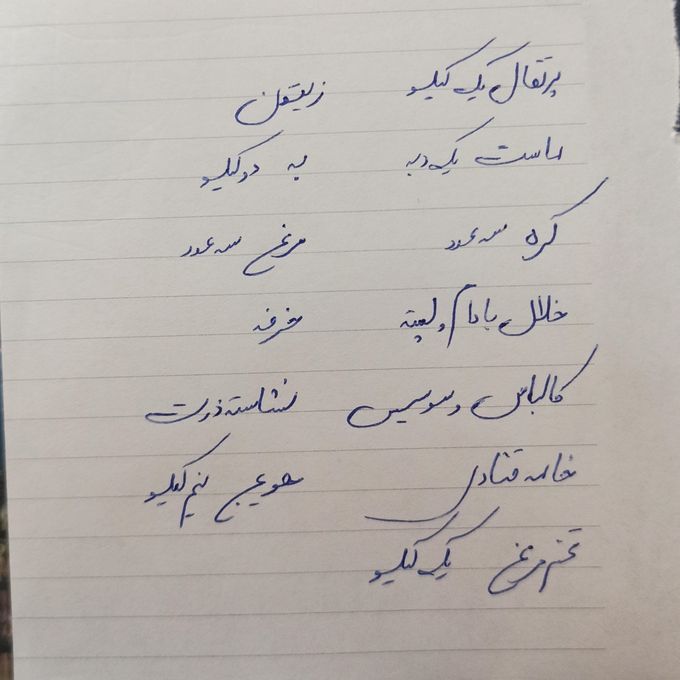 پرتقال یک کیلو
ماست یک دبه
کره سه عدد
خلال بادام و پسته
کالباس و سوسیس
خامه قنادی
تخم مرغ یک کیلو
زیتون
به دو کیلو
مرغ سه عدد
خرفه
نشاسته ذرت
هویج نیم کیلو